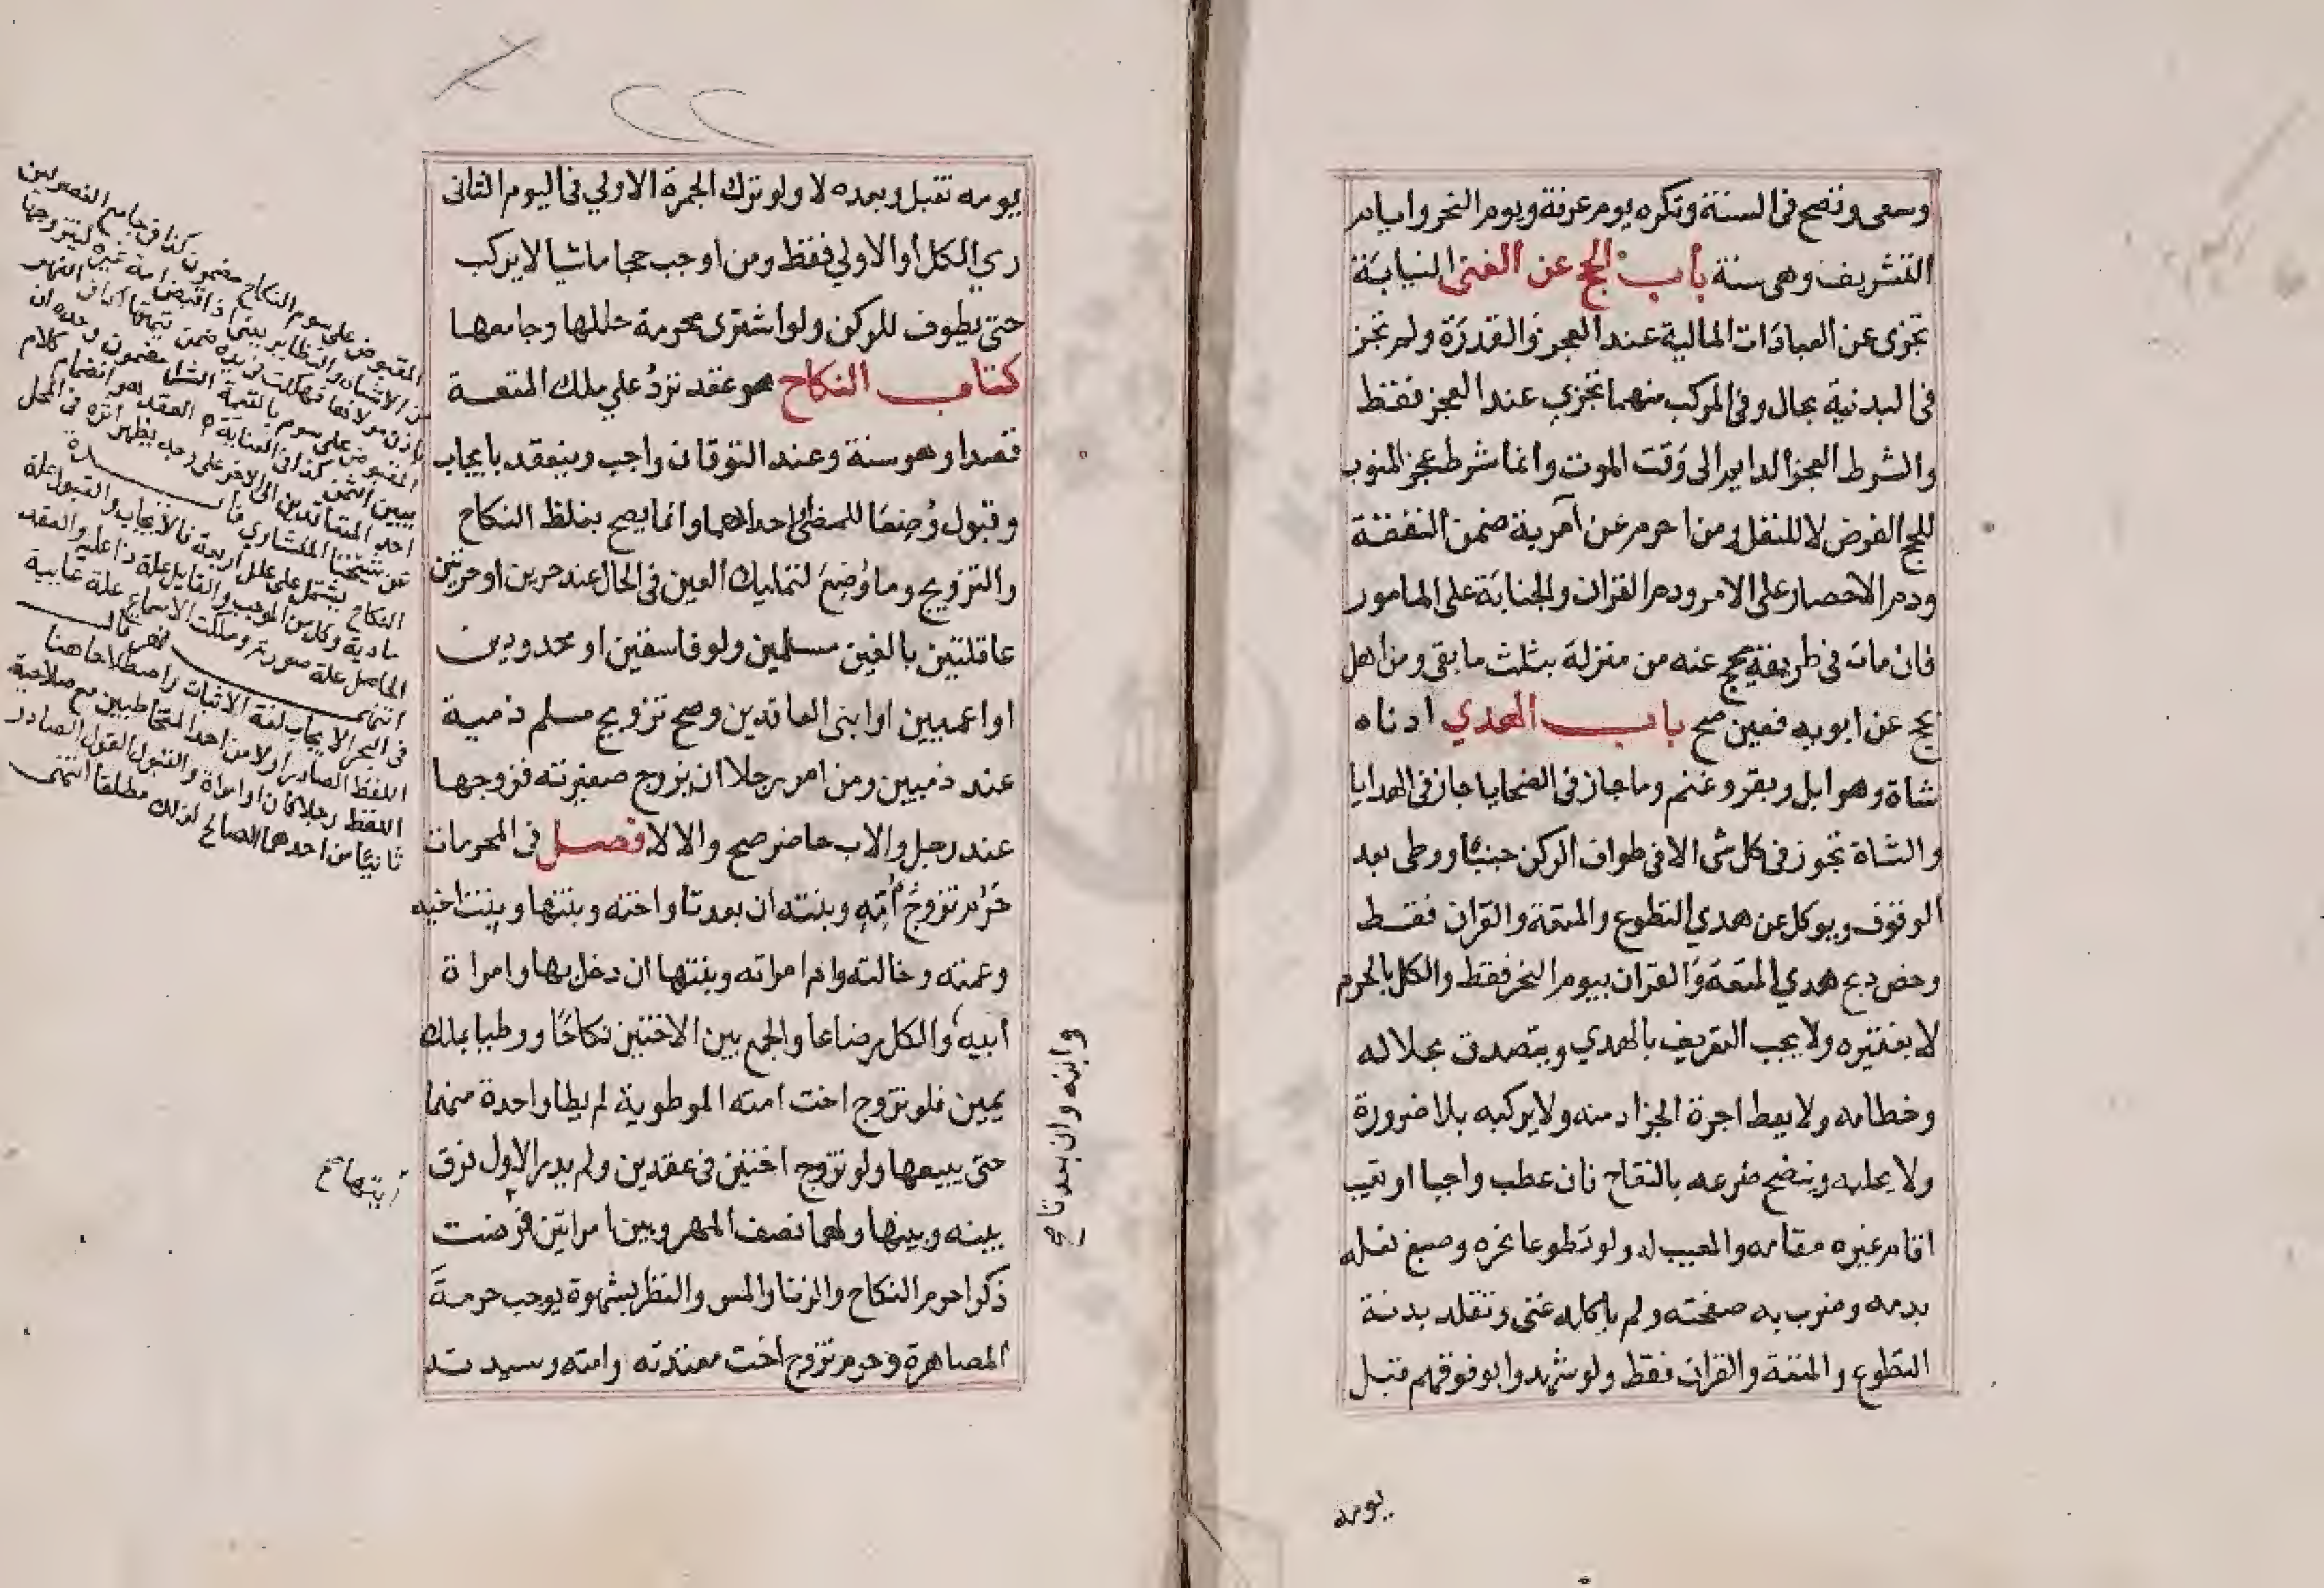 وسعى وتصح فى السنة وتكره يوم عرفة ويوم النحر وايام
التشريف وهى سنة باب الحج عن الغير النيابة
تجزى عن العبادات المالية عند العجز والقدرة ولم تجز
فى البدنية بحال وفى المركب منهما تجزي عند العجز فقط
والشرط العجز الدايم الى وقت الموت وانما شرط عجز المنوب
للحج الفرض لا للنفل ومن احرم عن آمرية ضمن النفقة
ودم الاحصار على الامر ودم القران والجناية على المامور
فان مات فى طريقه يحج عنه من منزله بثلث ما بقى ومن اهل
بحج عن ابويه فعين صح باب الهدي ادناه
شاة وهو ابل وبقر وغنم وما جاز فى الضحايا جاز فى الهدايا
والشاة تجوز فى كل شى الا فى طواف الركن جنبًا ووطى بعد
الوقوف ويوكل من هدي التطوع والمتعة والقران فقط
وخص دبح هدي المتعة والقران بيوم النحر فقط والكل بالحرم
لا بفقيره ولا يجب التعريف بالهدي ويتصدق بجلاله
وخطامه ولا يعط اجرة الجزار منه ولا يركبه بلا ضرورة
ولا يحلبه وينضح ضرعه بالنقاح فان عطب واجبا او تعيب
اقام غيره مقامه والمعيب له ولو تطوعا نحره وصبغ نعله
بدمه وضرب به صفحته ولم ياكله غنى وتقلد بدنة
التطوع والمتعة والقران فقط ولو شهدوا بوقوفهم قبل
يومه
يومه تقبل وبعده لا ولو ترك الجمرة الاولي فى اليوم الثانى
رمي الكل أو الاولي فقط ومن اوجب حجا ماشيا لا يركب
حتى يطوف للركن ولو اشترى محرمة حللها وجامعها
كتاب النكاح هو عقد تردُ علي ملك المتعة
قصدا وهو سنة وعند التوقان واجب وينعقد بايجاب
وقبول وُضِعَا للمضى او احدهما وانما يصح بلفظ النكاح
والتزويج وما وُضِعَ لتمليك العين فى الحال عند حرين او حرتين
عاقلتين بالغين مسلمين ولو فاسقين او محدودين
او اعميين او ابنى العاقدين وصح تزويج مسلم ذمية
عند ذميين ومن امر رجلا ان يزوج صغيرته فزوجها
عند رجل والاب حاضر صح والا لا فصل فى المحرمات
حَرُم تزوجُ أمِّه وبنته ان بعدتا واخته وبنتها وبنت اخيه
وعمته وخالته وام امراته وبنتها ان دخل بها وامراة
أبيه والكل رضاعا والجمع بين الاختين نكاحًا ووطيا بملك
يمين فلو تزوج اخت امته الموطوية لم يطا واحدة منهما
حتى يبيعها ولو تزوج اختين فى عقدين ولم يدر الاول فرق
بينه وبينها ولهما نصف المهر وبين امراتين فرضت
ذكرا حرم النكاح والزنا والمس والنظر بشهوة يوجب حرمةَ
المصاهرة وحرم تزوج اخت معتدته وامته وسيدته
وابنه وان بعدتا صح
المقبوض على سوم النكاح مضمون كذا فى جامع الفصولين
من الاشباه والنظاير
احد المتعاقدين الى الاخر على وجه يظهر اثره فى المحل
النكاح يشتمل على علل اربعة فالايجاب والقبول علة
مادية وكل من الموجب والقابل علة فاعلية والعقد
الحاصل علة صورية
فى البحر الايجاب لغة الاثبات واصطلاحا هنا
اللفظ الصادر اولا من احد المتخاطبين مع صلاحية
اللفظ رجلا كان او امراة والقبول القول الصادر
ثانيًا من احدهما الصالح لذلك مطلقا انتهى